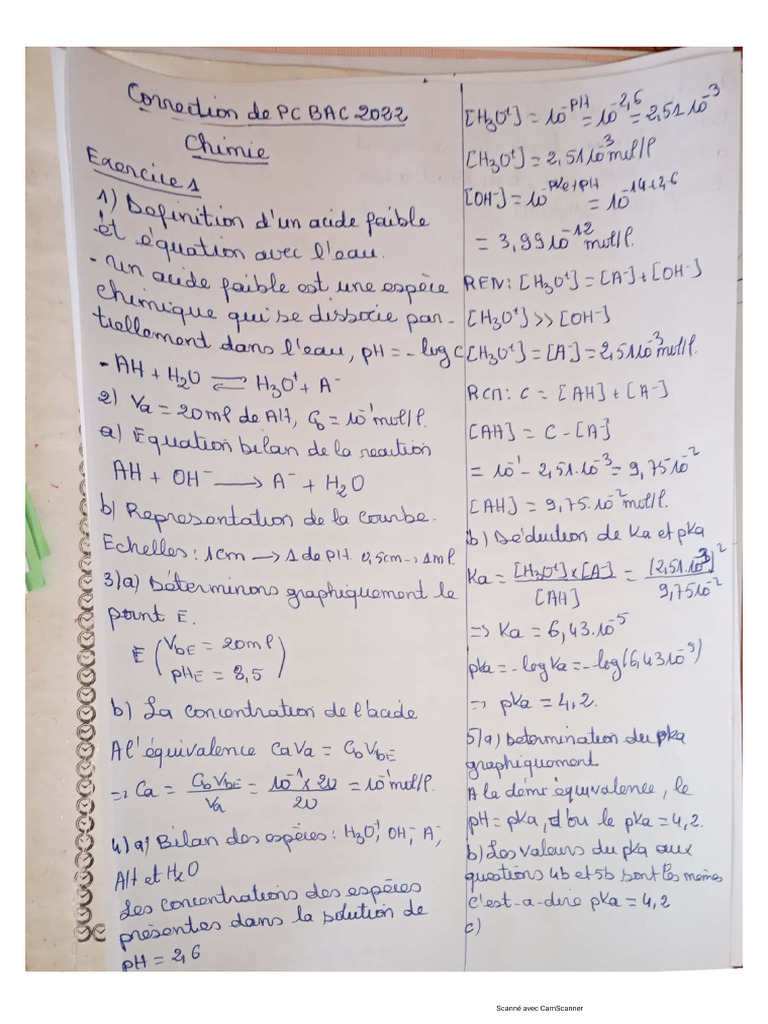 Correction de PC BAC 2022
Chimie
Exercice 1
1) Definition d'un acide faible
et équation avec l'eau.
- Un acide faible est une espèce
chimique qui se dissocie par-
tiellement dans l'eau, pH = - log C
- AH + H₂O ⇌ H₃O⁺ + A⁻
2) Va = 20ml de AH, Cb = 10⁻¹mol/l.
a) Equation bilan de la reaction
AH + OH⁻ ⟶ A⁻ + H₂O
b) Representation de la courbe.
Echelles : 1cm → 1 de pH. 0,5cm → 1ml.
3) a) Déterminons graphiquement le
point E.
E ( VbE = 20ml
pHE = 8,5 )
b) La concentration de l'acide
A l'équivalence CaVa = CbVbE
⇒ Ca = CbVbE / Va = 10⁻¹ x 20 / 20 = 10⁻¹mol/l.
4) a) Bilan des espèces : H₃O⁺, OH⁻, A⁻,
AH et H₂O
Les concentrations des espèces
présentes dans la solution de
pH = 2,6
[H₃O⁺] = 10⁻ᵖᴴ = 10⁻²,⁶ = 2,51 10⁻³
[H₃O⁺] = 2,51 10⁻³ mol/l
[OH⁻] = 10⁻ᵖᴷᵉ⁺ᵖᴴ = 10⁻¹⁴⁺²,⁶
= 3,99 10⁻¹² mol/l.
REN : [H₃O⁺] = [A⁻] + [OH⁻]
[H₃O⁺] >> [OH⁻]
[H₃O⁺] = [A⁻] = 2,51 10⁻³ mol/l.
RCM : C = [AH] + [A⁻]
[AH] = C - [A⁻]
= 10⁻¹ - 2,51.10⁻³ = 9,75 10⁻²
[AH] = 9,75.10⁻² mol/l.
b) Déduction de Ka et pKa
Ka = [H₃O⁺] x [A⁻] / [AH] = (2,51.10⁻³)² / 9,75 10⁻²
⇒ Ka = 6,43.10⁻⁵
pKa = - log Ka = - log (6,43 10⁻⁵)
⇒ pKa = 4,2.
5) a) Determination du pKa
graphiquement.
A la demi équivalence, le
pH = pKa, d'ou le pKa = 4,2.
b) Les valeurs du pKa aux
questions 4b et 5b sont les memes
c'est-a-dire pKa = 4,2
c)
Scanné avec CamScanner